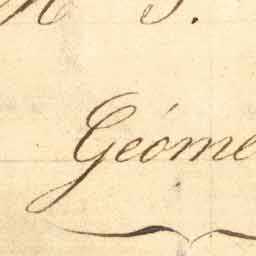 Géome